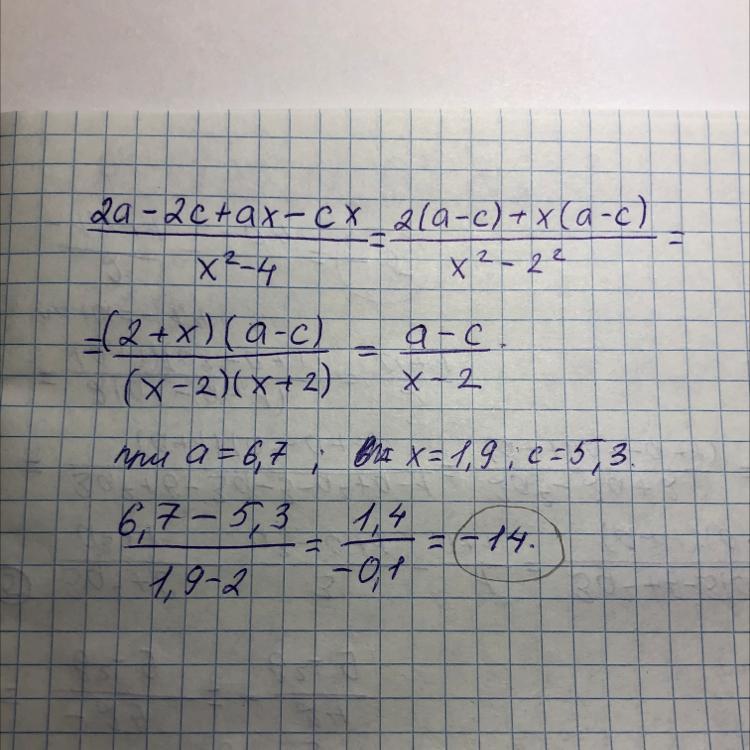 (2a-2c+ax-cx)/(x²-4) = (2(a-c)+x(a-c))/(x²-2²) =
= ((2+x)(a-c))/((x-2)(x+2)) = (a-c)/(x-2).
при a=6,7; x=1,9; c=5,3.
(6,7-5,3)/(1,9-2) = 1,4/(-0,1) = -14.